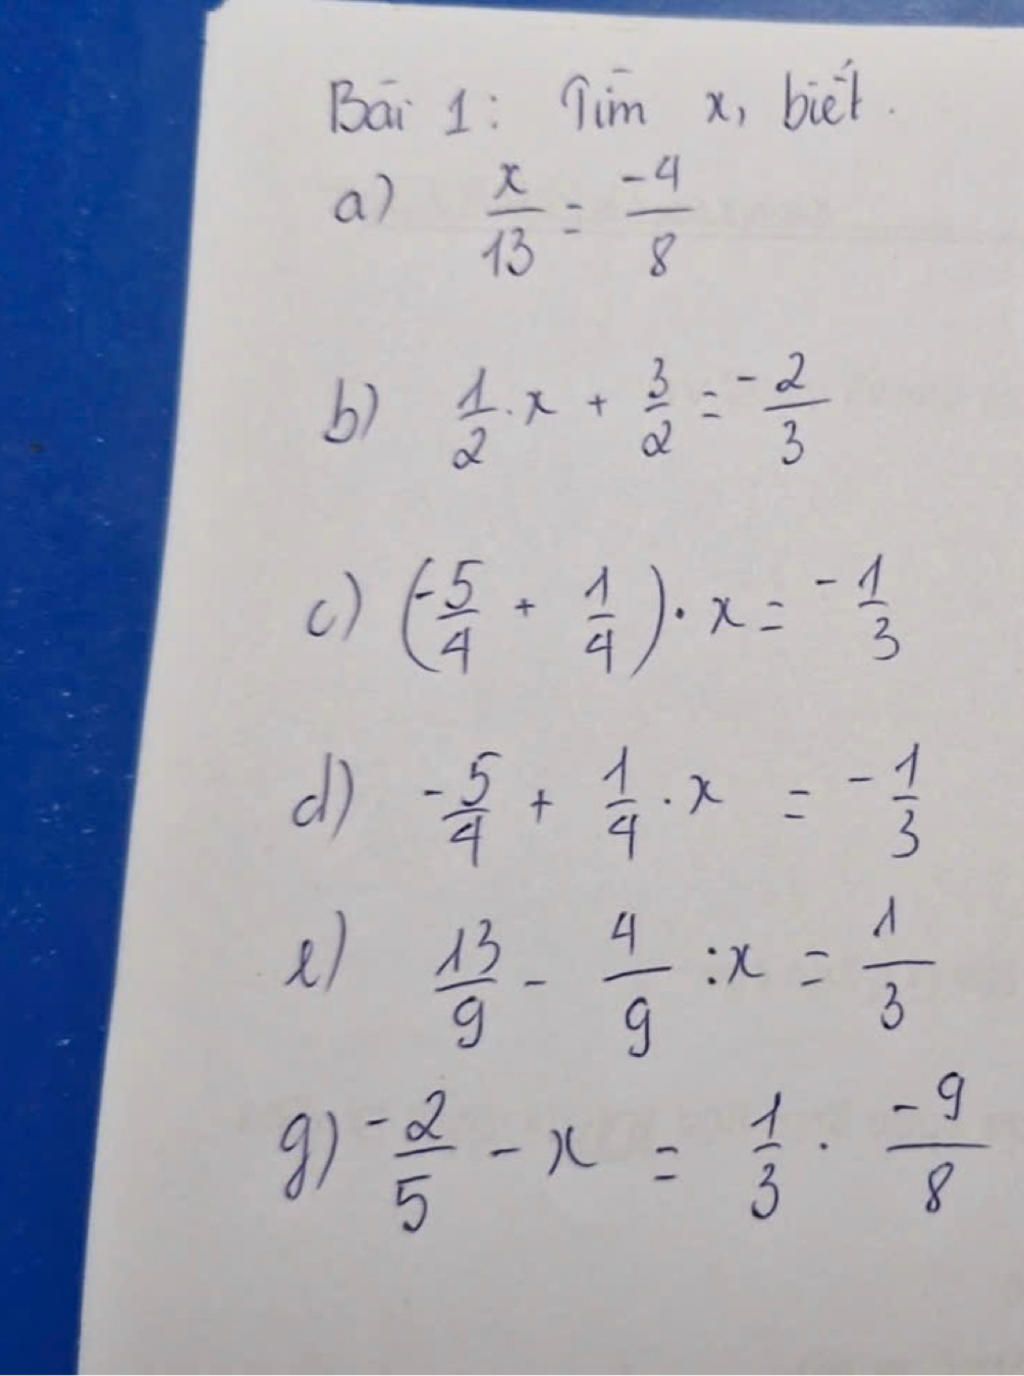 Bài 1: Tìm x, biết.
a) x/13 = -4/8
b) 1/2 . x + 3/2 = -2/3
c) (-5/4 + 1/4) . x = -1/3
d) -5/4 + 1/4 . x = -1/3
e) 13/9 - 4/9 : x = 1/3
g) -2/5 - x = 1/3 . -9/8